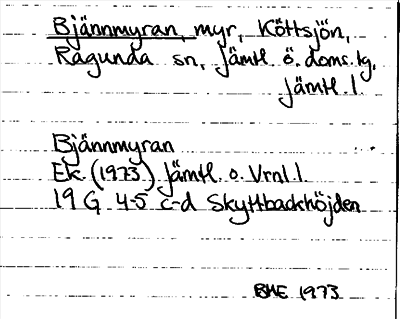 Bjännmyran, myr, Köttsjön,
Ragunda sn, Jämtl. ö. doms. tg,
Jämtl. l
Bjännmyran
Ek. (1973) Jämtl. o. Vrnl. l
19 G 4-5 c-d Skyttbackhöjden
BME 1973